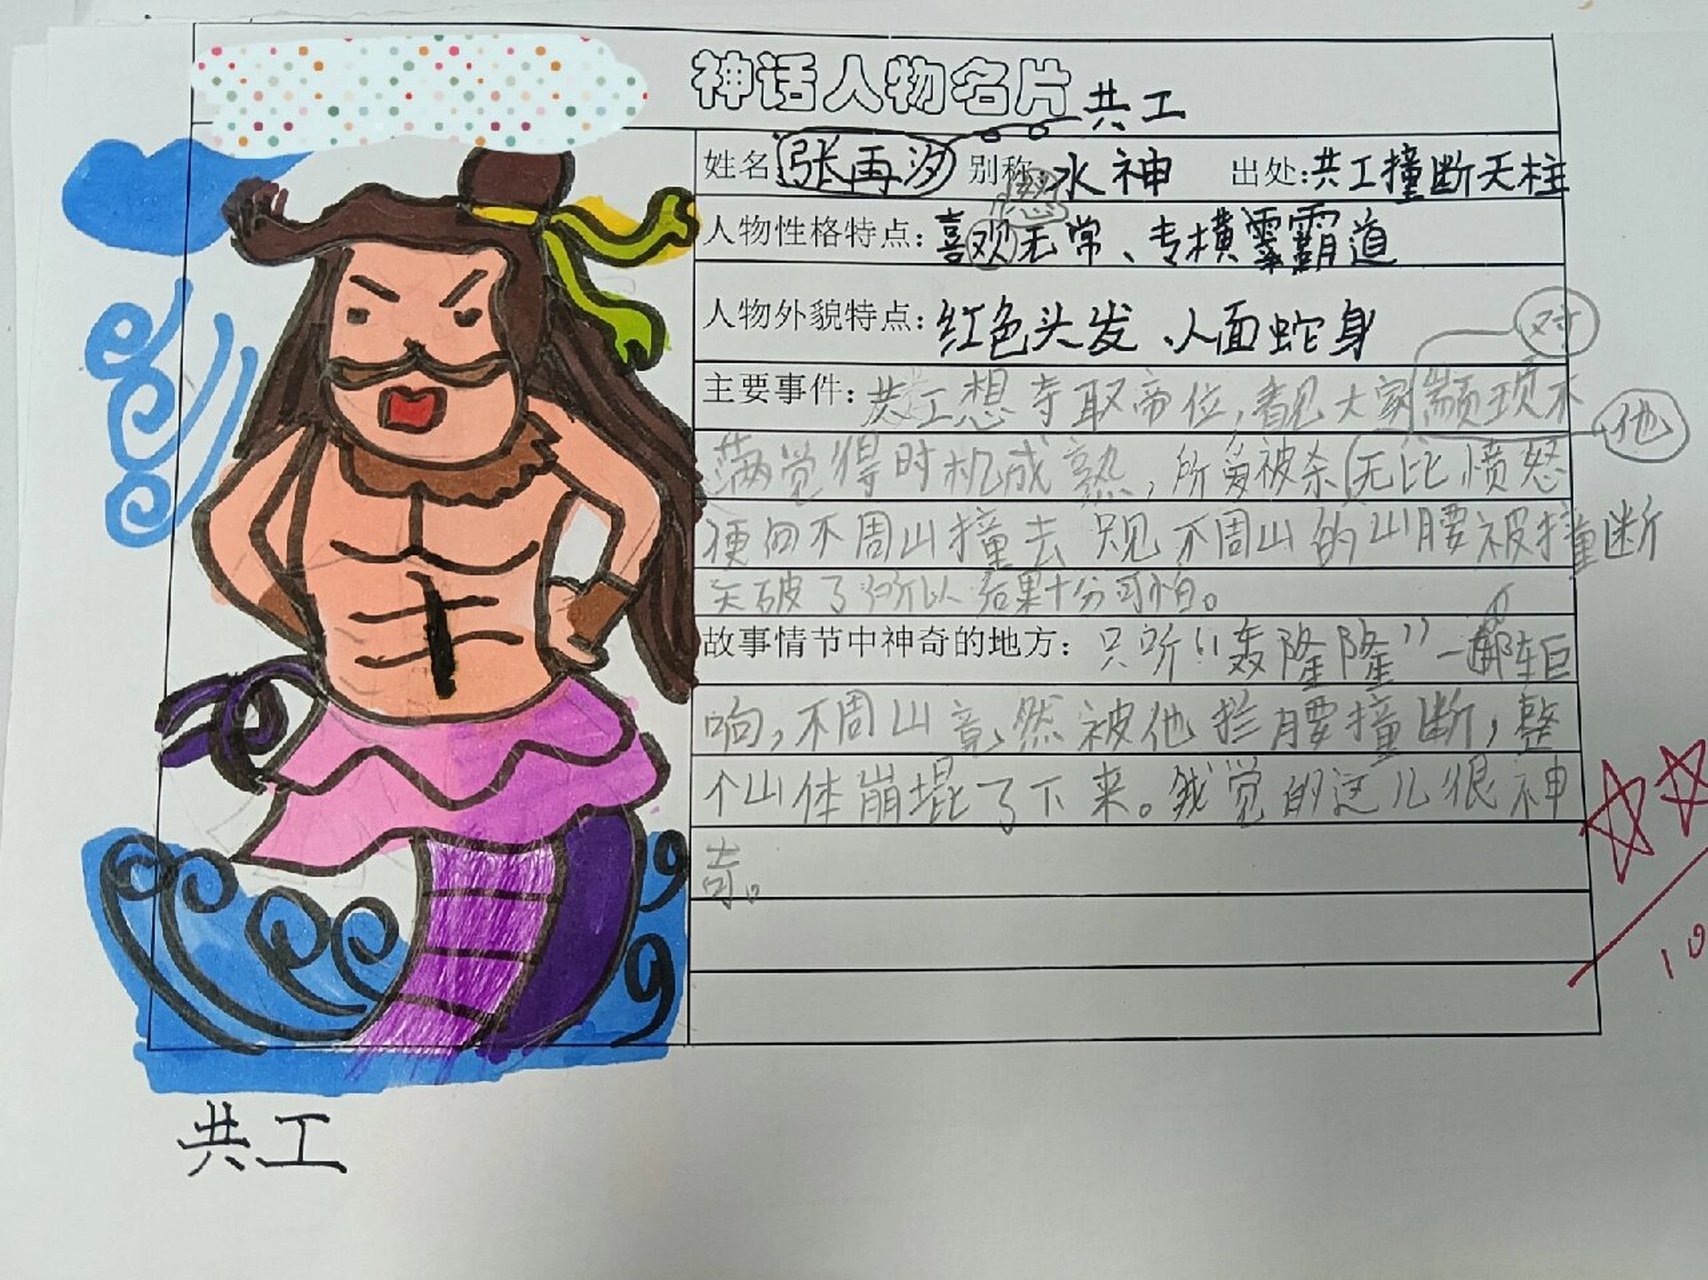 神话人物名片 共工
姓名 张再汐 别称:水神 出处:共工撞断天柱
怒
人物性格特点:喜欢无常、专横霸道
人物外貌特点:红色头发、人面蛇身
对
主要事件:共工想夺取帝位,看见大家颛顼不
他
满觉得时机成熟,所以被杀无比愤怒
便向不周山撞去 只见不周山的山腰被撞断
天破了 所以后果十分可怕。
故事情节中神奇的地方:只听“轰隆隆”一阵巨
响,不周山竟然被他拦腰撞断,整
个山体崩塌了下来。我觉的这儿很神
奇。
10
共工